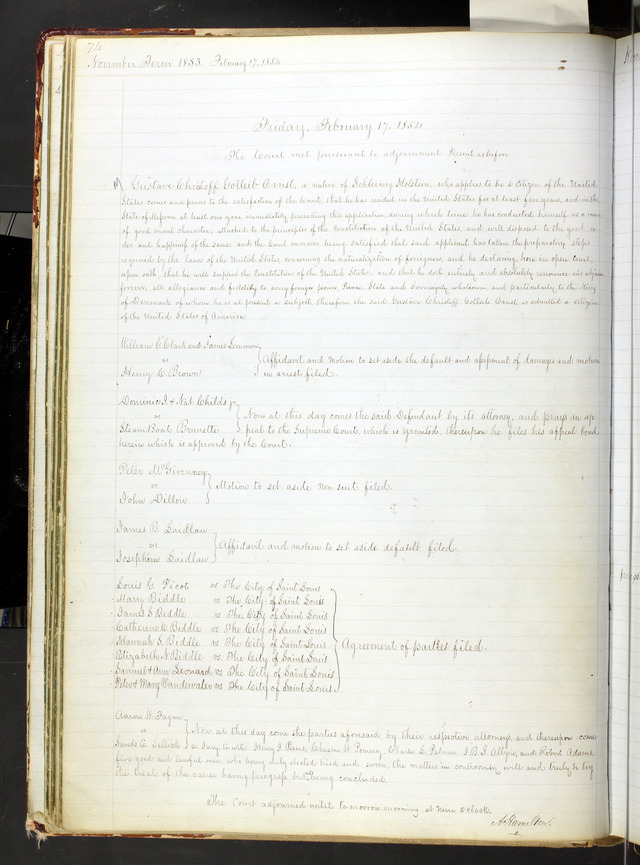 74
November Term 1853. February 17, 1854
Friday, February 17, 1854
The Court met pursuant to adjournment. Present as before
Gustave Christoff Gotleib Ernst, a native of Schleswig Holstein, who applies to be a citizen of the United
States comes and proves to the satisfaction of the Court, that he has resided in the United States for at least five years, and in the
State of Missouri at least one year immediately preceding this application, during which time he has conducted himself as a man
of good moral character, attached to the principles of the Constitution of the United States, and well disposed to the good or-
der and happiness of the same: and the Court moreover being satisfied that said applicant has taken the preparatory steps
required by the laws of the United States concerning the naturalization of foreigners, and he declaring here in open court,
upon oath, that he will support the Constitution of the United States, and that he doth entirely and absolutely renounce and abjure
forever, all allegiance and fidelity to every foreign power, Prince, State and Sovereignty whatsoever, and particularly to the King
of Denmark of whom he is at present a subject, therefore the said Gustave Christoff Gotleib Ernst is admitted a citizen
of the United States of America
William C. Clark and James Lemmon
vs
Henry C. Brown
Affidavit and motion to set aside the default and assessment of damages and motion
in arrest filed.
Dominic I. & Nat. Childs jr.
vs
Steam Boat Brunette
Now at this day comes the said Defendant by its attorney, and prays an ap-
peal to the Supreme Court, which is granted, thereupon he files his appeal bond
herein which is approved by the Court.
Peter McGivenney
vs
John Dillow
Motion to set aside Non suit filed.
James B. Laidlaw
vs
Josephine Laidlaw
Affidavit and motion to set aside default filed.
Louis G. Picot vs The City of Saint Louis
Mary Biddle vs The City of Saint Louis
James S. Biddle vs The City of Saint Louis
Catherine C. Biddle vs The City of Saint Louis
Hannah S. Biddle vs The City of Saint Louis
Elizabeth N. Biddle vs The City of Saint Louis
Samuel & Ann Leonard vs The City of Saint Louis
Peter & Mary Vandewater vs The City of Saint Louis.
Agreement of parties filed.
Aaron W. Fagan
vs
Now at this day come the parties aforesaid by their respective attorneys, and thereupon come
a Jury, to wit: Henry I. Charles W. Pomeroy, Charles L. Palmer, and Robert Adams
five good and lawful men, who being duly elected tried and sworn, the matters in controversy well and truly to try
the trial of the cause having progressed, but not being concluded.
The Court adjourned until tomorrow morning at nine o'clock.
A. Hamilton.